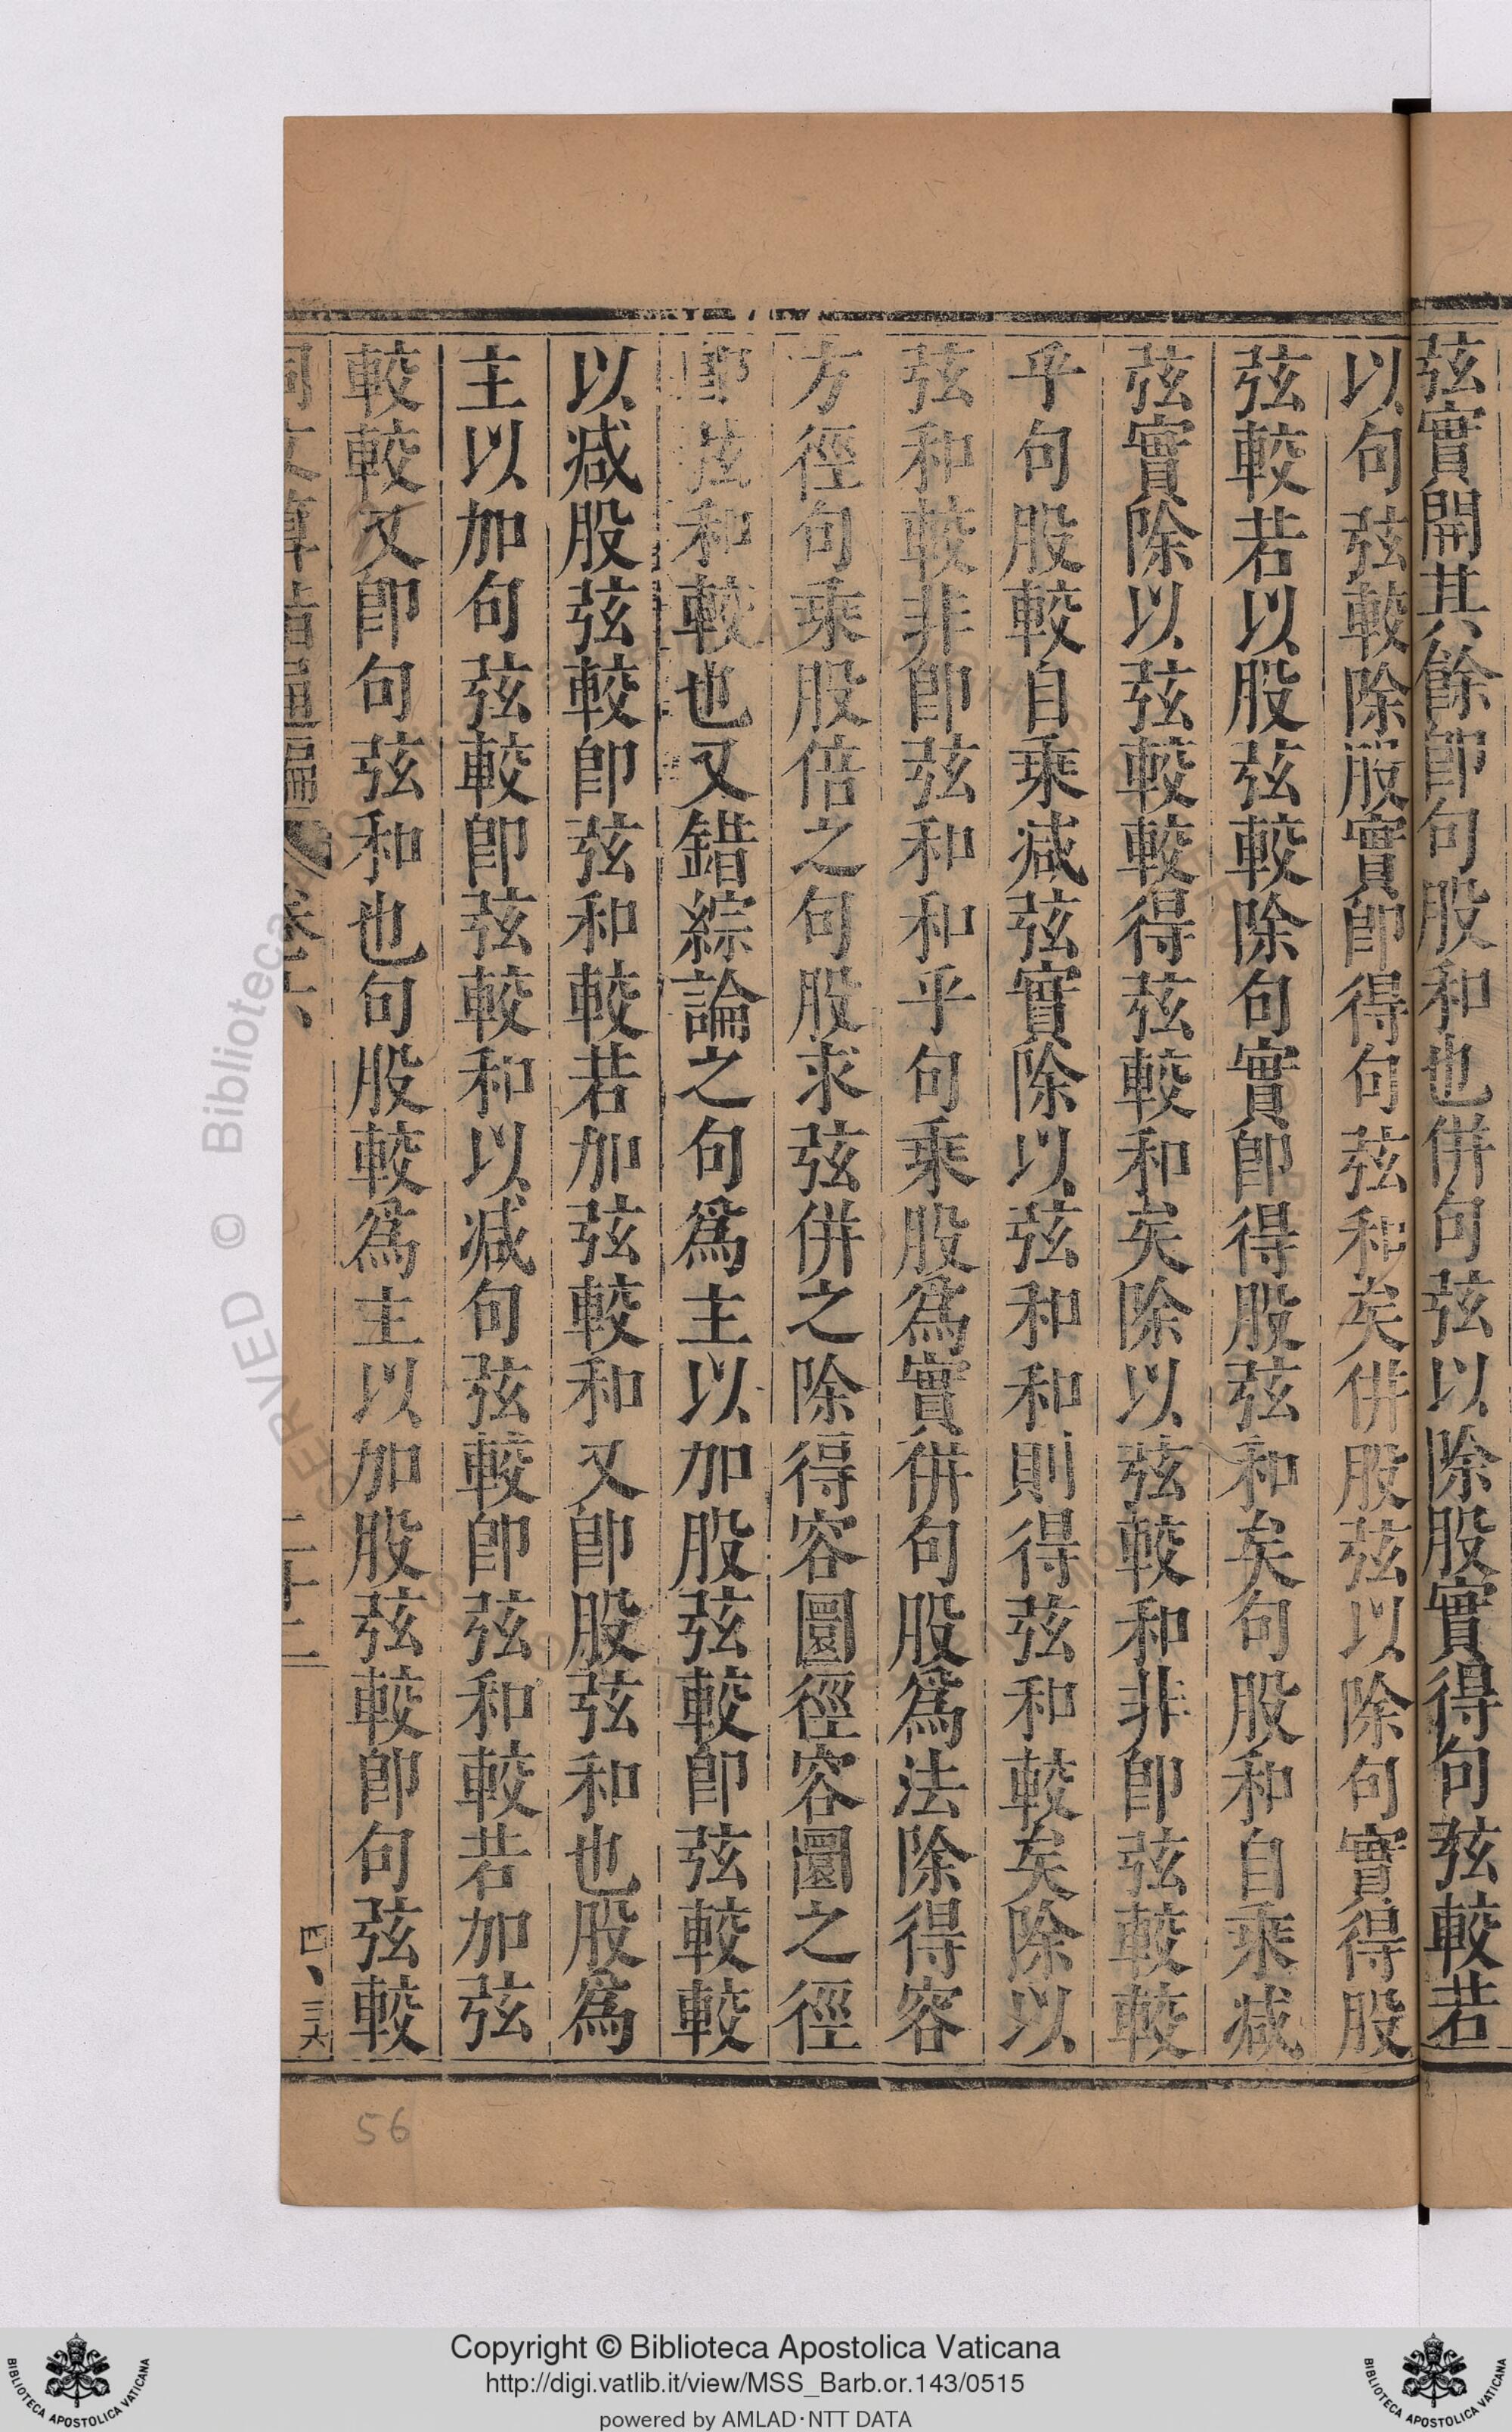 弦實開其餘卽句股和也併句弦以除股實得句弦較若
以句弦較除股實卽得句弦和矣併股弦以除句實得股
弦較若以股弦較除句實卽得股弦和矣句股和自乘減
弦實除以弦較得弦較和矣除以弦較和非卽弦較較
乎句股較自乘減弦實除以弦和和則得弦和較矣除以
弦和較非卽弦和和乎句乘股爲實併句股爲法除得容
方徑句乘股倍之句股求弦併之除得容圓徑容圓之徑
卽弦和較也又錯綜論之句爲主以加股弦較卽弦較較
以減股弦較卽弦和較若加弦較和又卽股弦和也股爲
主以加句弦較卽弦較和以減句弦較卽弦和較若加弦
較較又卽句弦和也句股較爲主以加股弦較卽句弦較
同文算指通編 卷六
二十二
四、三六
56
© Biblioteca
Copyright © Biblioteca Apostolica Vaticana
http://digi.vatlib.it/view/MSS_Barb.or.143/0515
powered by AMLAD·NTT DATA
BIBLIOTECA APOSTOLICA VATICANA
BIBLIOTECA APOSTOLICA VATICANA